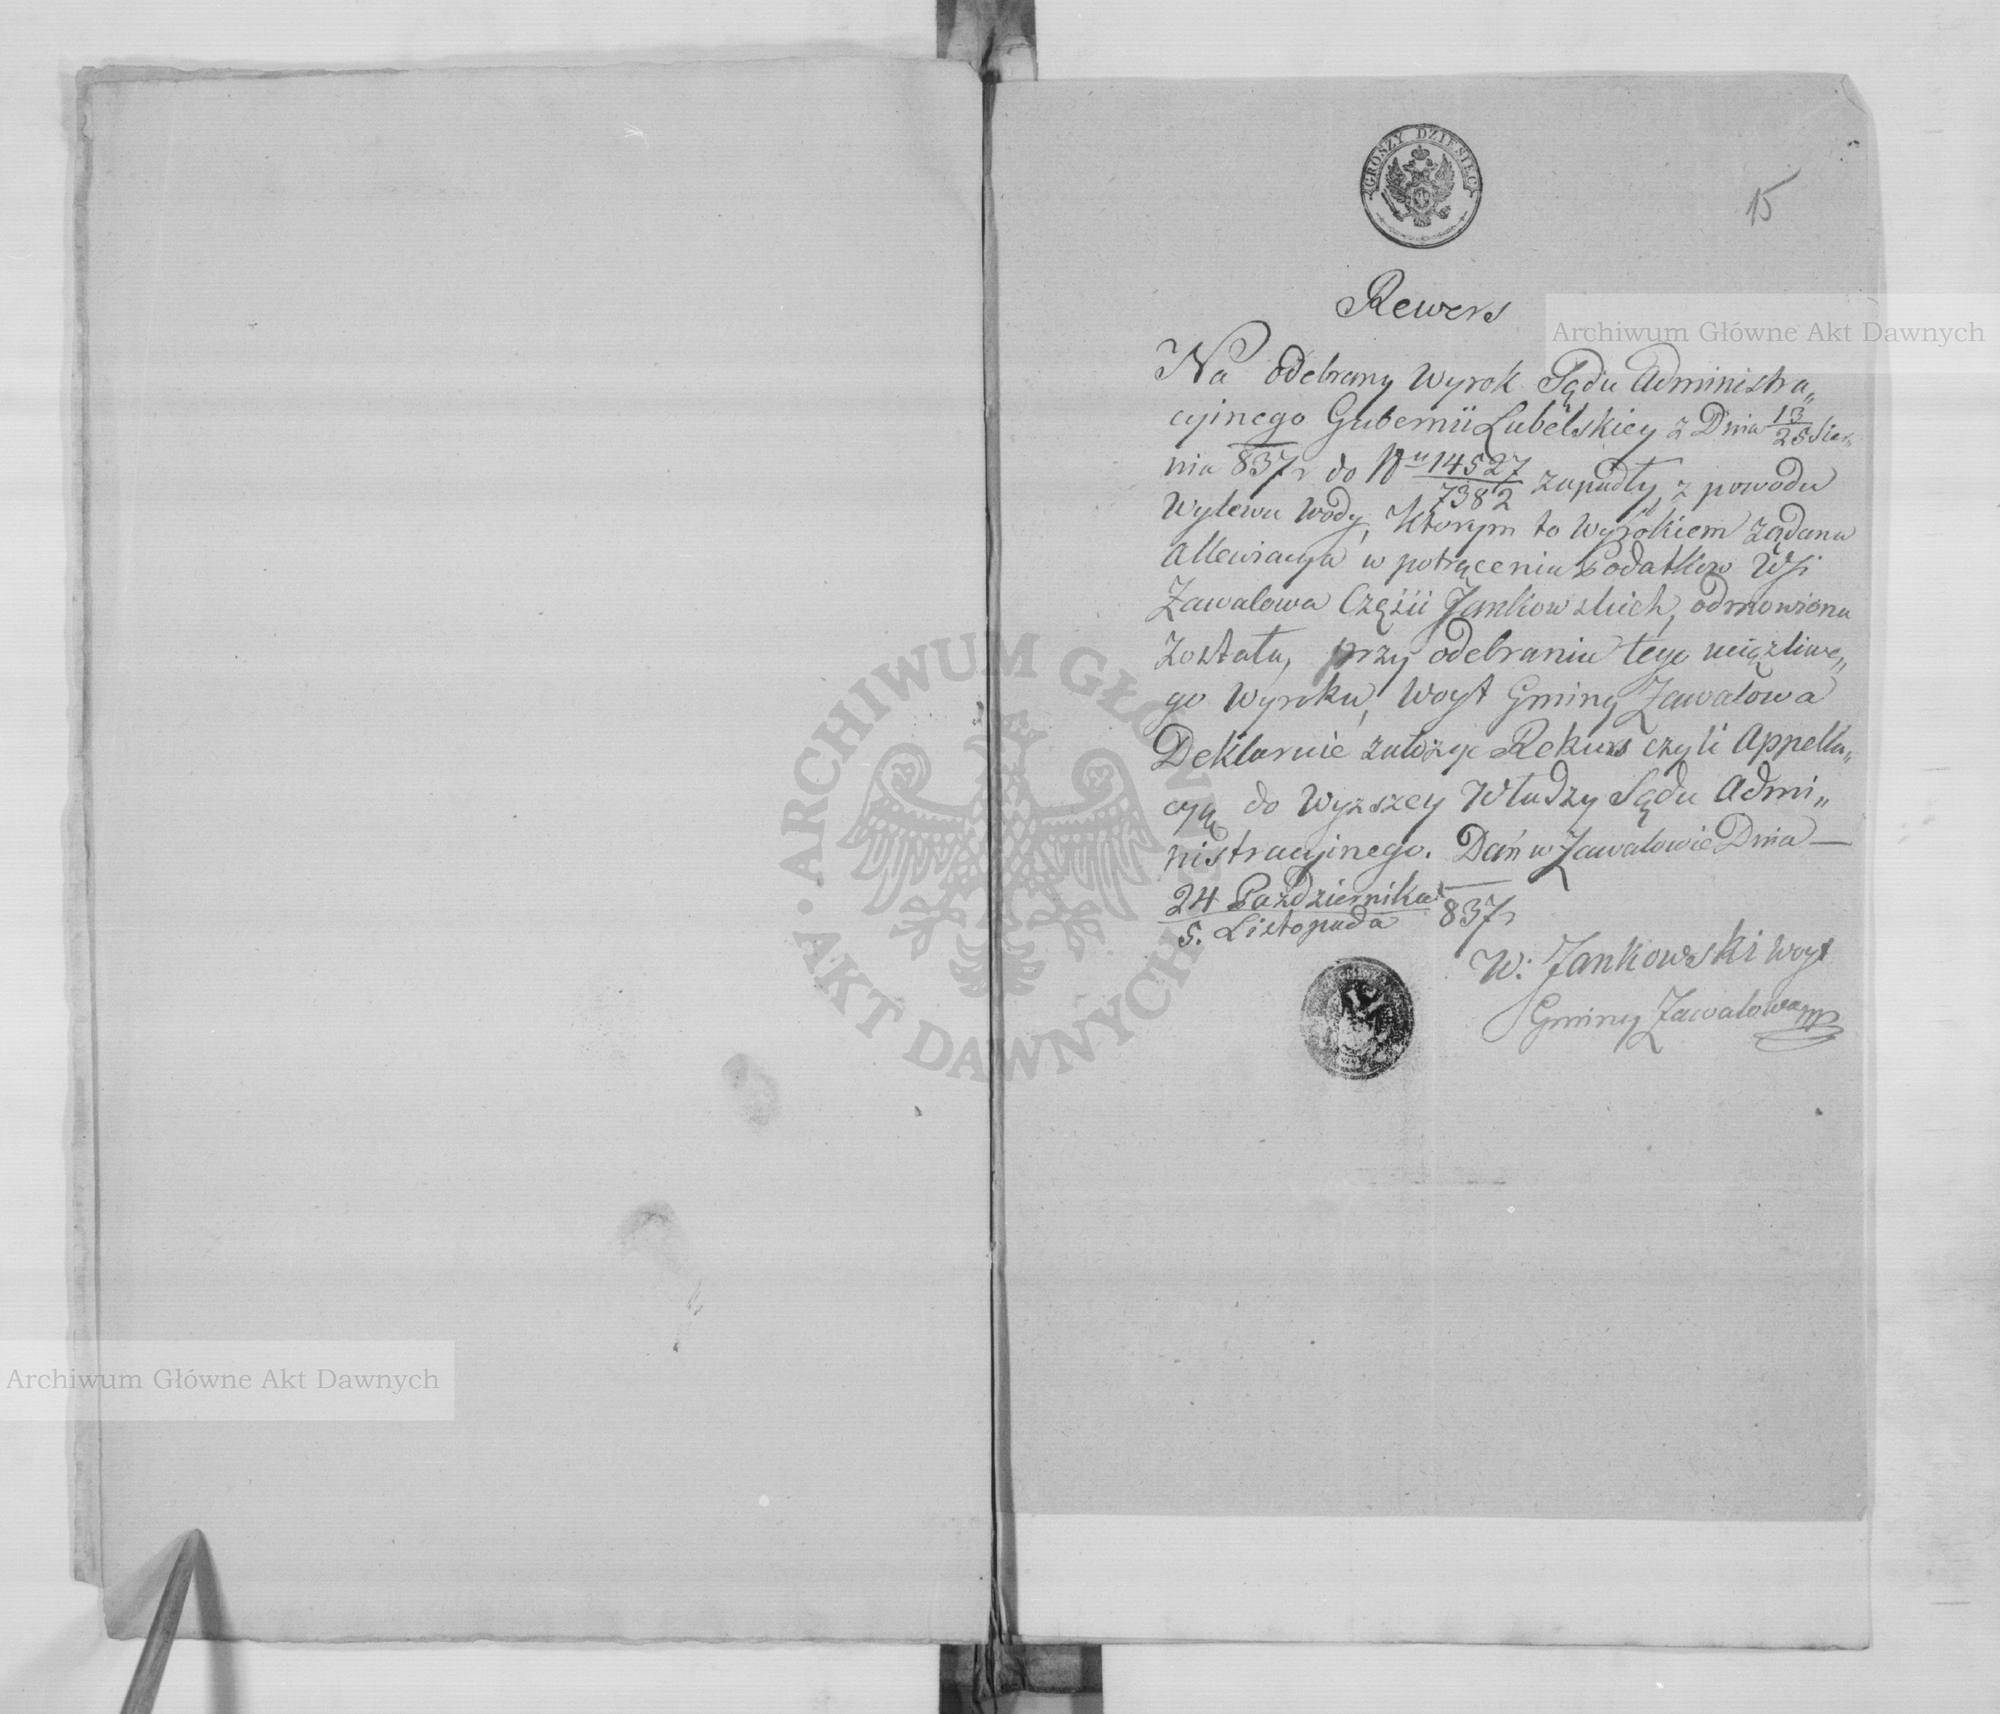 GROSZY DZIESIĘĆ
15
Rewers
Archiwum Główne Akt Dawnych
Na odebrany Wyrok Sądu Administra„
cyinego Gubernii Lubelskiey z Dnia 13/25 Sier„
nia 837r do Nru 14527/7382 zapadły, z powodu
Wylewu Wody, Ktorym to Wyrokiem żądana
Allewiacya w potrąceniu Podatkow Wsi
Zawalowa Częśii Jankowskich, odmowiona
została, przy odebraniu tego uciążliwe„
go Wyroku, Woyt Gminy Zawalowa
Deklaruie założyc Rekurs czyli Appella„
cyą do Wyzszey Władzy Sądu Admi„
nistracyinego. Dań w Zawalowie Dnia —
24 Pazdziernika/5. Listopada 837r
W: Jankowski Woyt
Gminy Zawalowa
ARCHIWUM GŁÓWNE · AKT DAWNYCH ·
Archiwum Główne Akt Dawnych